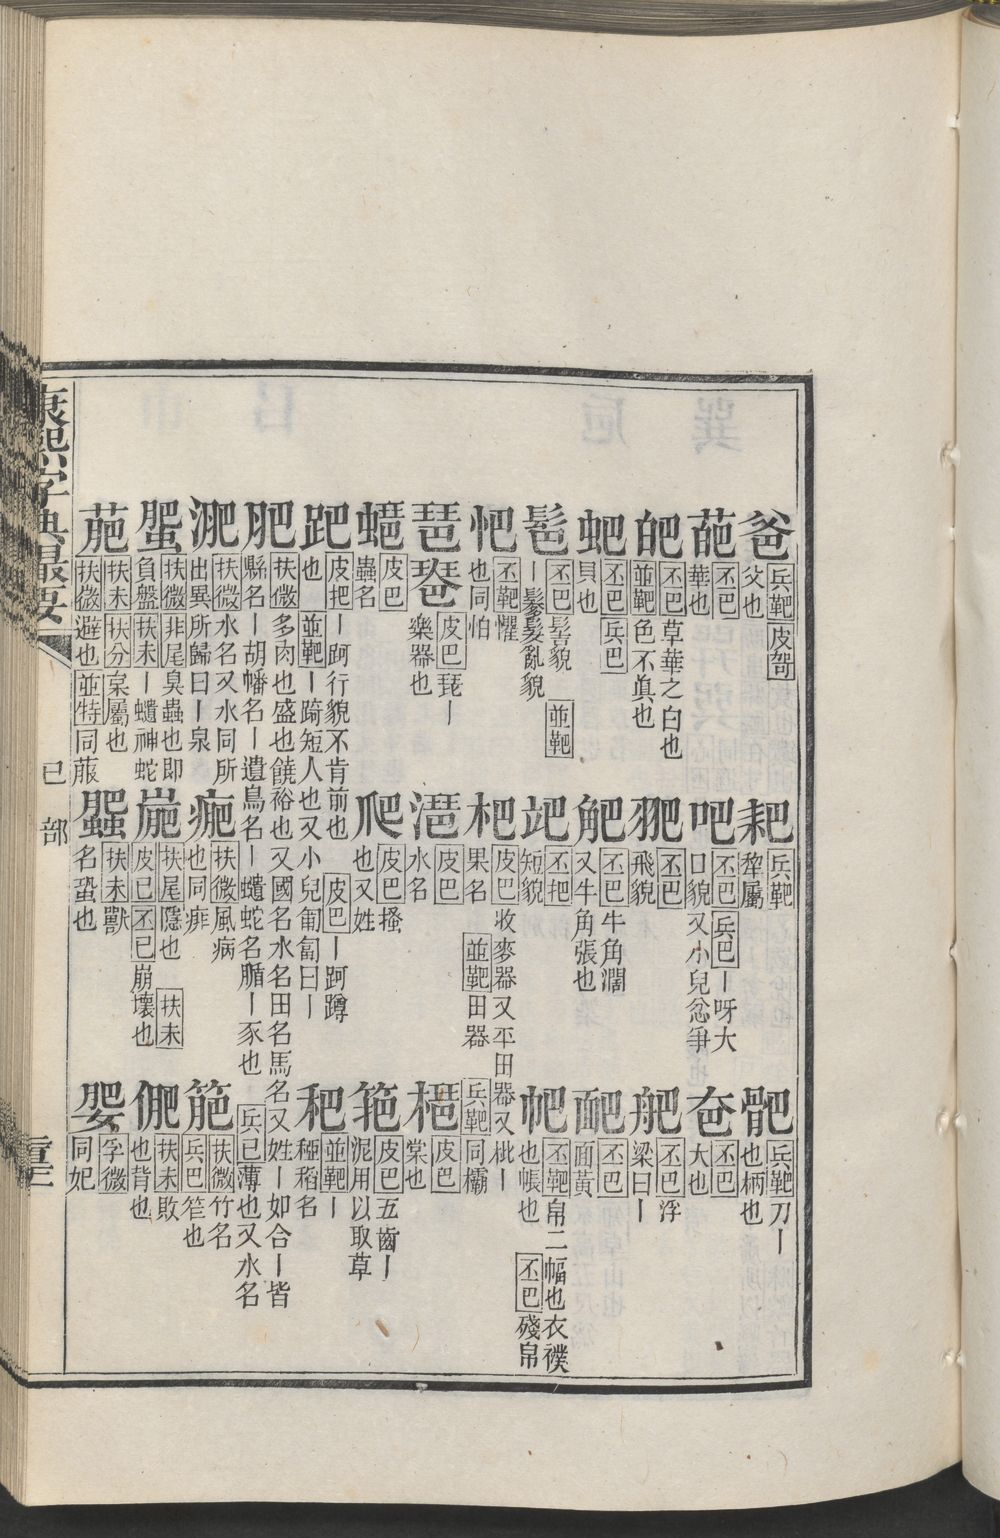 爸兵靶皮哿父也 耙兵靶犂屬 䶕兵靶刀丨也柄也
葩丕巴華也 吧丕巴兵巴丨呀大口貌又小兒忿爭 夿丕巴大也
皅丕巴草華之白也並靶色不眞也 䎱丕巴飛貌 舥丕巴浮梁曰丨
蚆丕巴兵巴貝也 䶕丕巴牛角濶又牛角張也 丕巴面黃
丕巴髻貌並靶丨鬖髮亂貌 丕把短貌 帊丕靶帛二幅也衣襆也帳也丕巴殘帛
怕丕靶懼也同怕 杷皮巴收麥器又平田器又枇丨果名並靶田器兵靶同欛
琶皮巴琵丨樂器也 皮巴水名 皮巴棠也
皮巴蟲名 爬皮巴搔也又姓 皮巴五齒丨泥用以取草
跁皮把丨跒行貌不肯前也皮巴丨跒蹲也並靶丨踦短人也又小兒匍匐曰丨 䄀並靶丨䅉稻名
肥扶微多肉也盛也饒裕也又國名水名田名馬名又姓丨如合丨皆縣名丨胡幡名丨遺鳥名丨蟦蛇名腯丨豕也兵已薄也又水名
淝扶微水名又水同所出異所歸曰丨泉 扶微風病也同痱 扶微竹名兵巴笮也
蜰扶微非尾臭蟲也即負盤扶未丨蟦神蛇 扶尾隱也扶未皮已丕已崩壞也 俷扶未敗也背也
萉扶未扶分枲屬也扶微避也並特同菔 扶未獸名蛩也 孚微同妃
康熙字典最要 巳部